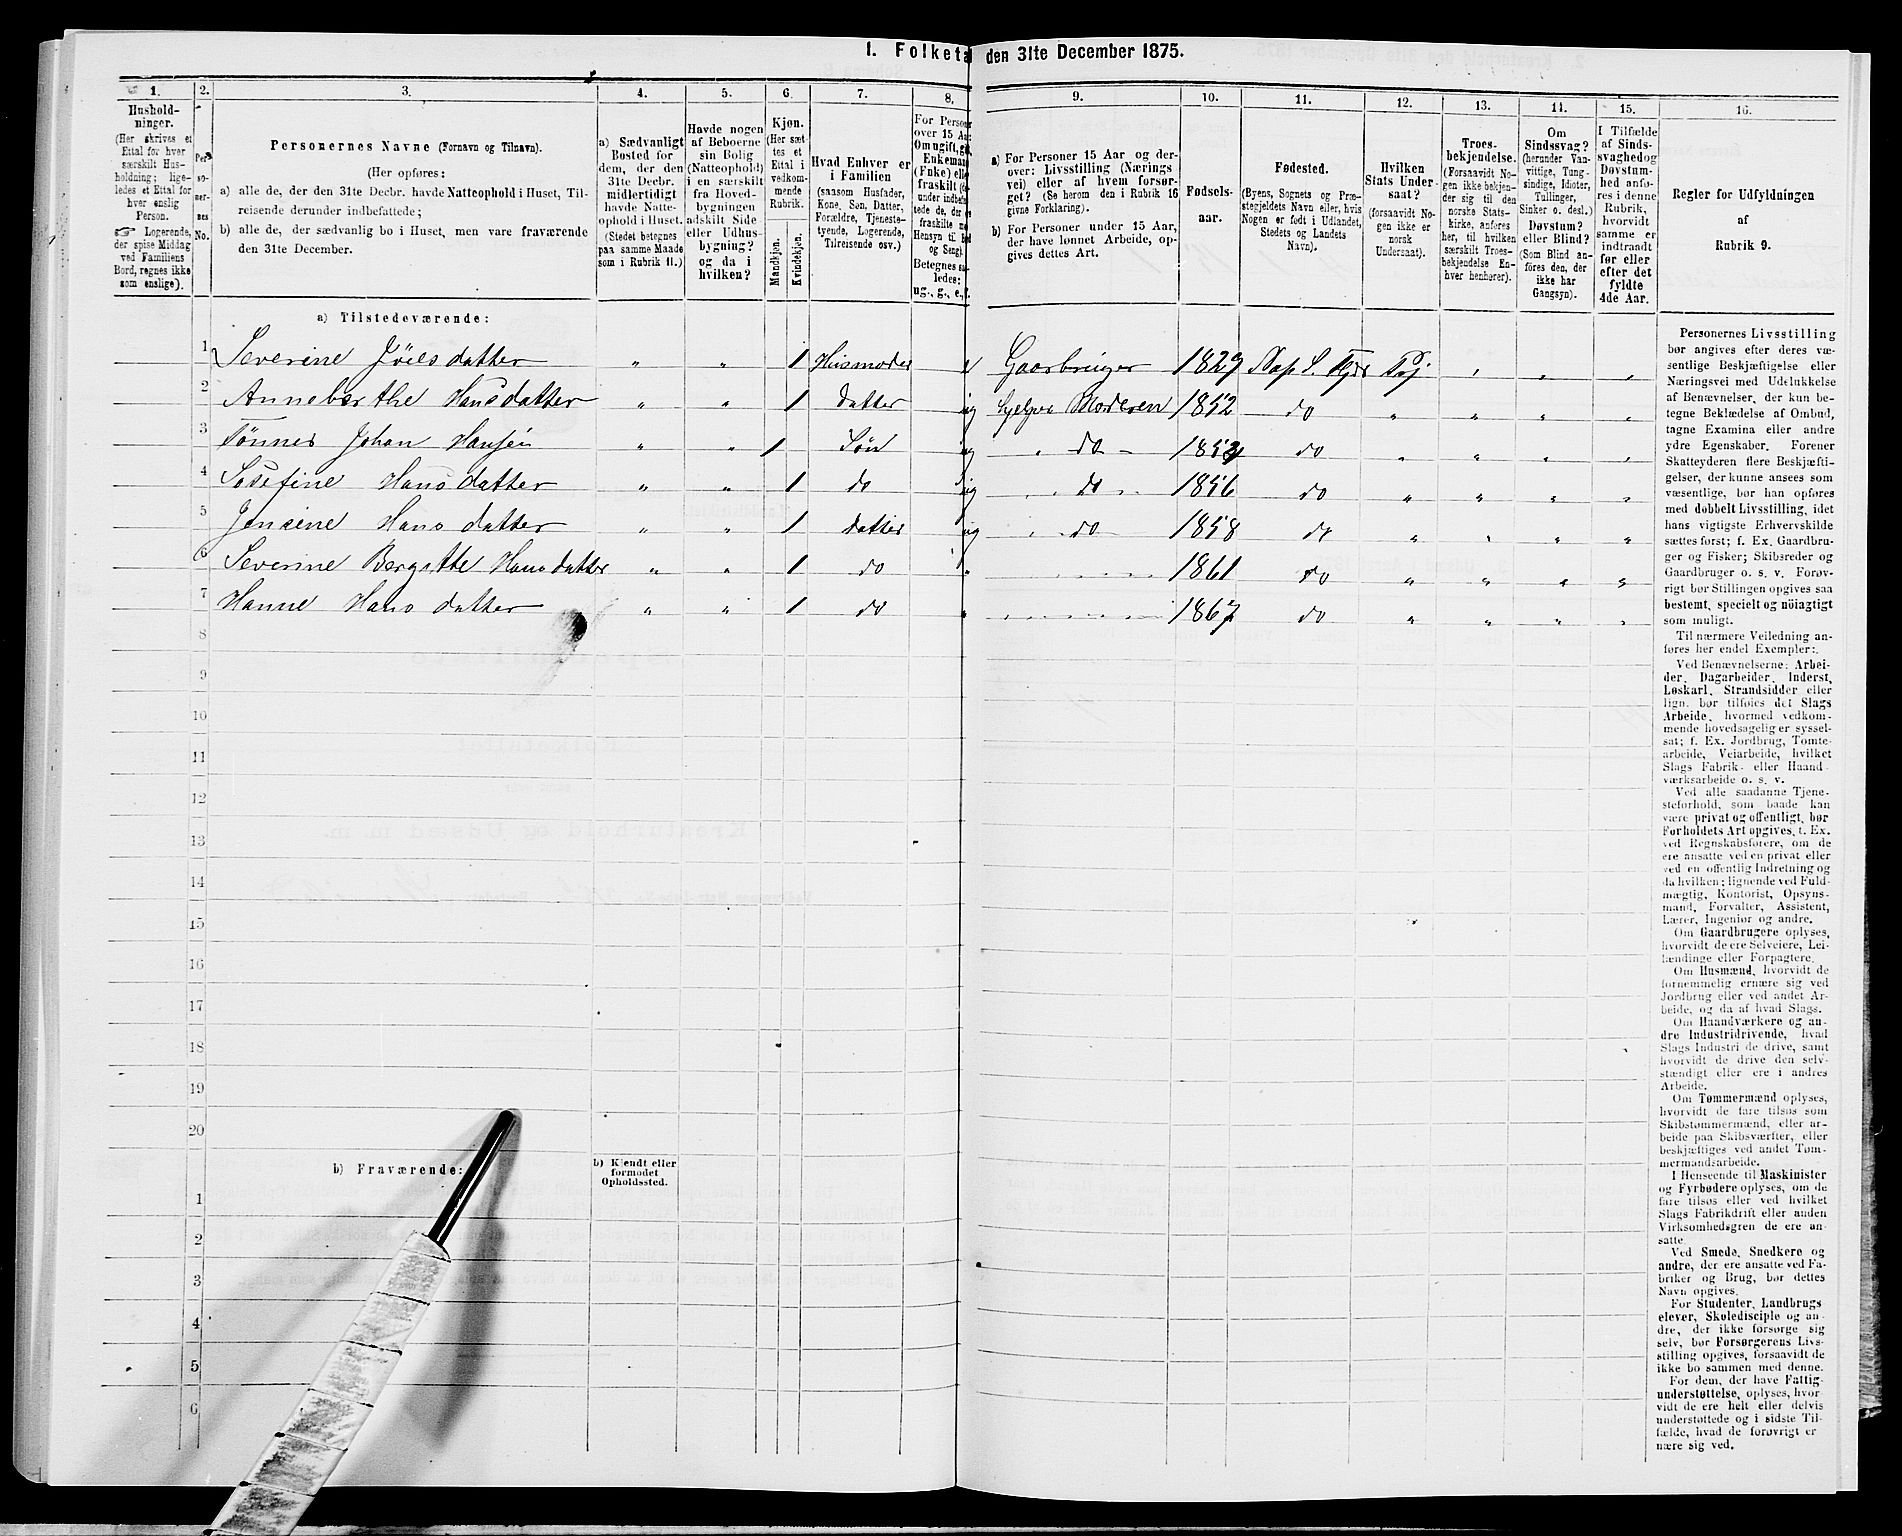 1. Folketal den 31te December 1875.
1. 2. 3. 4. 5. 6. 7. 8. 9. 10. 11. 12. 13. 14. 15. 16.
Hushold-
ninger.
(Her skrives et
Ettal for hver
særskilt Hus-
holdning; lige-
ledes et Ettal for
hver enslig
Person.
☞ Logerende,
der spise Middag
ved Familiens
Bord, regnes ikke
som enslige).
Per-
so-
ner-
nes
No.
Personernes Navne (Fornavn og Tilnavn).
(Her opføres:
a) alle de, der den 31te Decbr. havde Natteophold i Huset, Til-
reisende derunder indbefattede;
b) alle de, der sædvanlig bo i Huset, men vare fraværende
den 31te December.
a) Sædvanligt
Bosted for
dem, der den
31te Decbr.
midlertidigt
havde Natte-
ophold i Huset.
(Stedet betegnes
paa samme Maade
som i Rubrik 11.)
Havde nogen
af Beboerne
sin Bolig
(Natteophold)
i en særskilt
fra Hoved-
bygningen
adskilt Side
eller Udhus-
bygning?
og da i
hvilken?
Kjøn.
(Her sæt-
tes et
Ettal i
vedkom-
mende
Rubrik.
Mandkjøn.
Kvindekjøn.
Hvad Enhver er
i Familien
(saasom Husfader,
Kone, Søn, Datter,
Forældre, Tjeneste-
tyende, Logerende,
Tilreisende osv.)
For Person
over 15 Aar:
Om ugift, gift,
Enkemand
(Enke) eller
fraskilt
Betegnes saa-
ledes:
ug., g., e., f.
a) For Personer 15 Aar og der-
over: Livsstilling (Nærings-
vei) eller af hvem forsør-
get? (Se herom den i Rubrik 16
givne Forklaring).
b) For Personer under 15 Aar,
der have lønnet Arbeide, op-
gives dettes Art.
Fødsels-
aar.
Fødested.
(Byens, Sognets og Præ-
stegjeldets Navn eller, hvis
Nogen er født i Udlandet,
Stedets og Landets
Navn).
Hvilken
Stats Under-
saat?
(forsaavidt No-
gen ikke er
norsk
Undersaat).
Troes-
bekjendelse.
(Forsaavidt No-
gen ikke bekjen-
der sig til den
norske Stats-
kirke, anføres
her, til hvilken
særskilt Troes-
bekjendelse En-
hver henhører).
Om
Sindssvag?
(herunder Van-
vittige, Tung-
sindige, Idioter,
Tullinger,
Sinker o. desl.)
Døvstum?
eller Blind?
(Som Blind an-
føres den, der
ikke har
Gangsyn).
I Tilfælde
af Sinds-
svaghed og
Døvstum-
hed anfø-
res i denne
Rubrik,
hvorvidt
samme er
indtraadt
før eller
efter det
fyldte
4de Aar.
Regler for Udfyldningen
af
Rubrik 9.
a) Tilstedeværende:
1 Severine Joelsdatter " " 1 Husmoder Gaarbruger 1829
2 Anneberthe Hansdatter " " 1 datter ug hjelper Moderen 1852 do " " " "
3 Tønnes Johan Hansen " " 1 Søn ug " do do " " " "
4 Josefine Hansdatter " " 1 do ug do 1856 do " " " "
5 Jensine Hansdatter " " 1 datter ug do 1858 do " " " "
6 Severine Bergitte Hansdatter " " 1 do " 1861 do " " " "
7 Hanne Hansdatter " " 1 do " 1867 do " " " "
8
9
10
11
12
13
14
15
16
17
18
19
20
b) Fraværende: b) Kjendt eller
formodet
Opholdssted.
1
2
3
4
5
6
Personernes Livsstilling
bør angives efter deres væ-
sentlige Beskjæftigelse eller
Næringsvei med Udelukkelse
af Benævnelser, der kun be-
tegne Beklædelse af Ombud,
tagne Examina eller andre
ydre Egenskaber. Forener
Skatteyderen flere Beskjæfti-
gelser, der kunne ansees som
væsentlige, bør han opføres
med dobbelt Livsstilling, idet
hans vigtigste Erhvervskilde
sættes først; f. Ex. Gaardbru-
ger og Fisker; Skibsreder og
Gaardbruger o. s. v. Forøv-
rigt bør Stillingen opgives saa
bestemt, specielt og nöiagtigt
som muligt.
Til nærmere Veiledning an-
føres her endel Exempler:
Ved Benævnelserne: Arbei-
der, Dagarbeider, Inderst,
Løskarl, Strandsidder eller
lign. bør tilføies det Slags
Arbeide, hvormed vedkom-
mende hovedsagelig er syssel-
sat; f. Ex. Jordbrug, Tomte-
arbeide, Veiarbeide, hvilket
Slags Fabrik- eller Haand-
værksarbeide o. s. v.
Ved alle saadanne Tjene-
steforhold, som baade kan
være privat og offentligt, bør
Forholdets Art opgives, t. Ex.
ved Regnskabsførere, om de
ere ansatte ved en privat eller
ved en offentlig Indretning og
da hvilken; lignende ved Fuld-
mægtig, Kontorist, Opsyns-
mand, Forvalter, Assistent,
Lærer, Ingeniør og andre.
Om Gaardbrugere oplyses,
hvorvidt de ere Selveiere, Lei-
lændinge eller Forpagtere.
Om Husmænd, hvorvidt de
fornemmelig ernære sig ved
Jordbrug eller ved andet Ar-
beide, og da af hvad Slags.
Om Haandværkere og an-
dre Industridrivende, hvad
Slags Industri de drive, samt
hvorvidt de drive den selv-
stændigt eller ere i andres
Arbeide.
Om Tømmermænd oplyses,
hvorvidt de fare tilsøs som
Skibstømmermænd, eller ar-
beide paa Skibsværfter, eller
beskjæftiges ved andet Tøm-
mermandsarbeide.
I Henseende til Maskinister
og Fyrbødere oplyses, om de
fare tilsøs eller ved hvilket
Slags Fabrikdrift eller anden
Virksomhedsgren de ere an-
satte.
Ved Smede, Snedkere og
andre, der ere ansatte ved Fa-
briker og Brug, bør dettes
Navn opgives.
For Studenter, Landbrugs
elever, Skoledisciple og an-
dre, der ikke forsørge sig
selv, bør Forsørgerens Livs-
stilling opgives, forsaavidt de
ikke bo sammen med denne.
For dem, der have Fattig-
understøttelse, oplyses, hvor-
vidt de ere helt eller delvis
understøttede og i sidste Til-
fælde, hvad de forøvrigt er
nære sig ved.